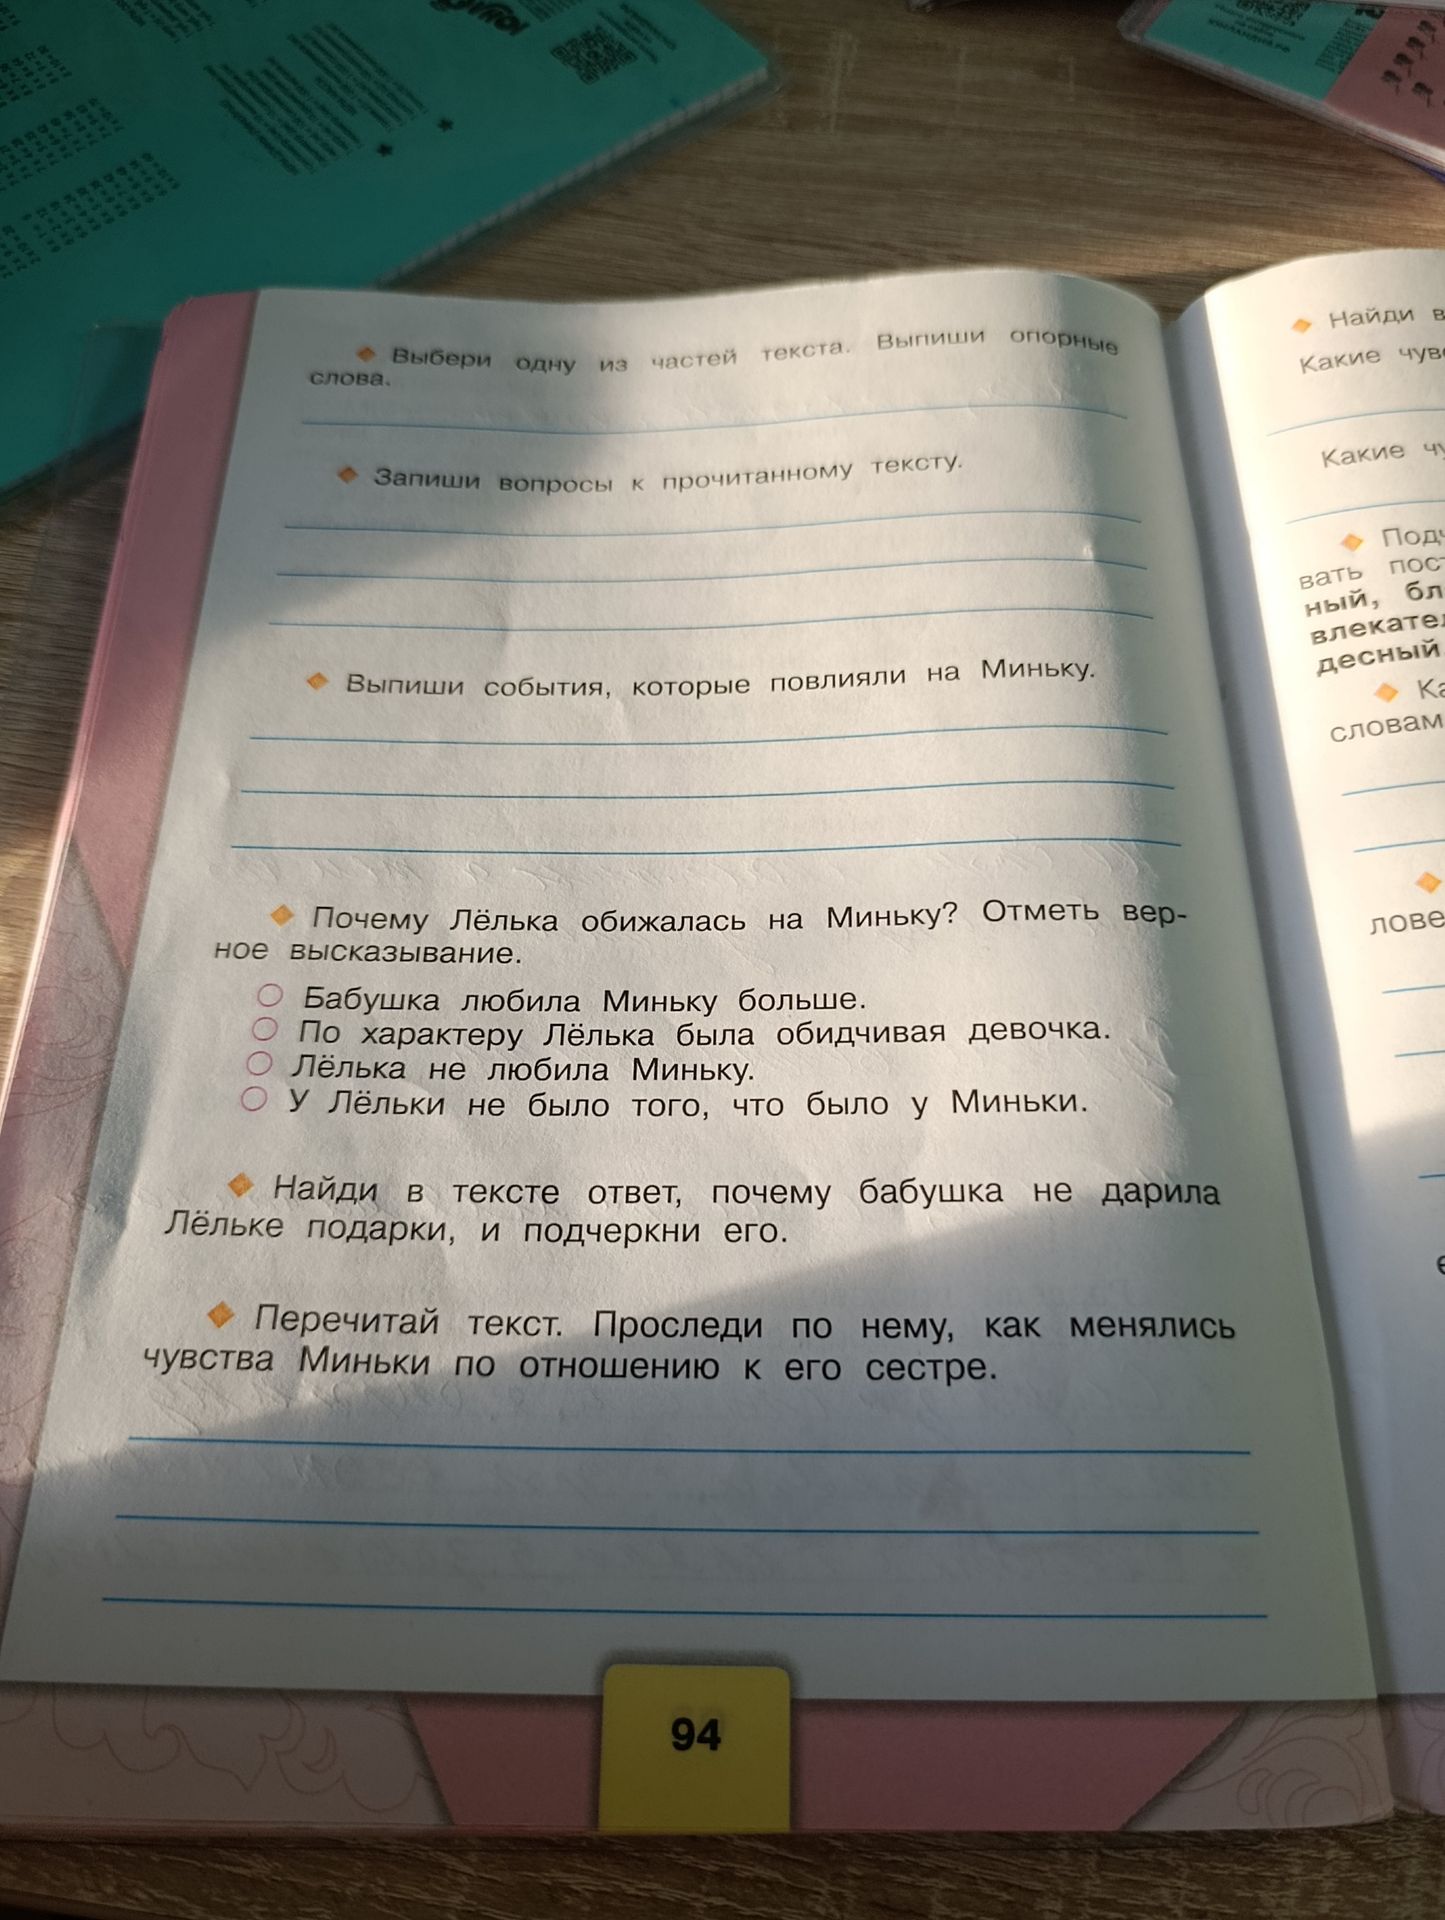 Выбери одну из частей текста. Выпиши опорные
слова.
Запиши вопросы к прочитанному тексту.
Выпиши события, которые повлияли на Миньку.
Почему Лёлька обижалась на Миньку? Отметь вер-
ное высказывание.
Бабушка любила Миньку больше.
По характеру Лёлька была обидчивая девочка.
Лёлька не любила Миньку.
У Лёльки не было того, что было у Миньки.
Найди в тексте ответ, почему бабушка не дарила
Лёльке подарки, и подчеркни его.
Перечитай текст. Проследи по нему, как менялись
чувства Миньки по отношению к его сестре.
94
Найди в
Какие чув
Какие чу
вать пос
ный, бл
влекател
десный
Ка
словам
лове